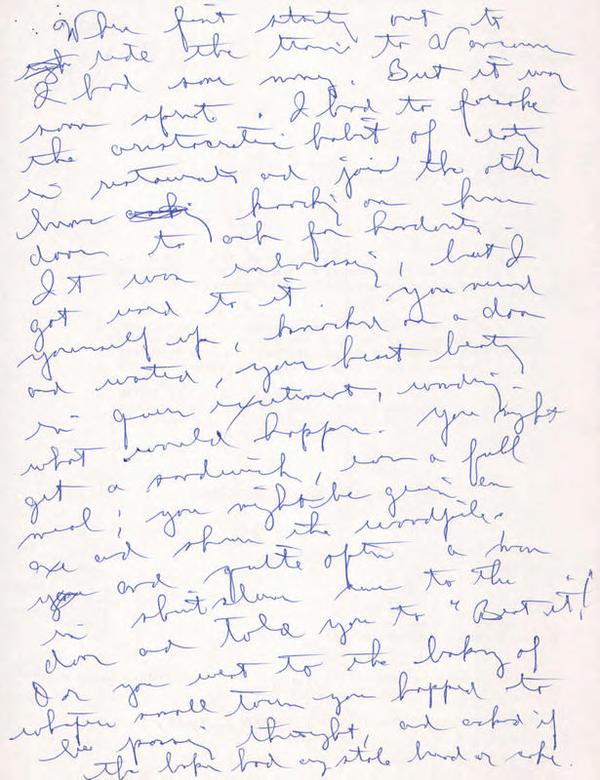 When first starting out to
ride the trains to Vancouver
I had some money. But it was
soon spent. I had to forsake
the aristocratic habit of eating
in restaurants and join the other
knocking on
doors to ask for handouts.
It was embarrassing, but I
got used to it. You nerved
yourself up, knocked on a door
and waited, your heart beating
in queer excitement, wondering
what would happen. You might
get a sandwich, even a full
meal; you might be given an
axe and shown the woodpile.
and quite often a
in shirtsleeves came to the
door and told you to "Beat it!"
Or you went to the bakery of
whatever small town you happened to
be passing through, and asked if
the baker had any stale bread or